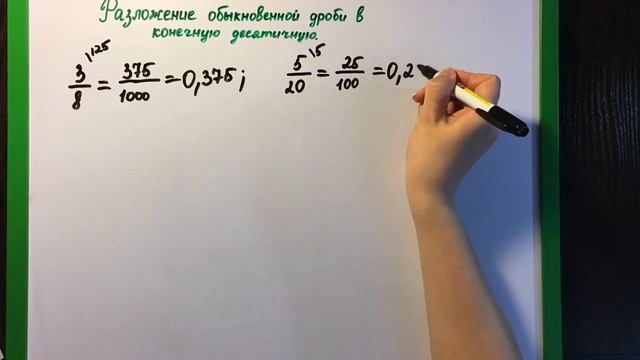 Разложение обыкновенной дроби в
конечную десятичную.
3/8 \125 = 375/1000 = 0,375 ; 5/20 \5 = 25/100 = 0,2